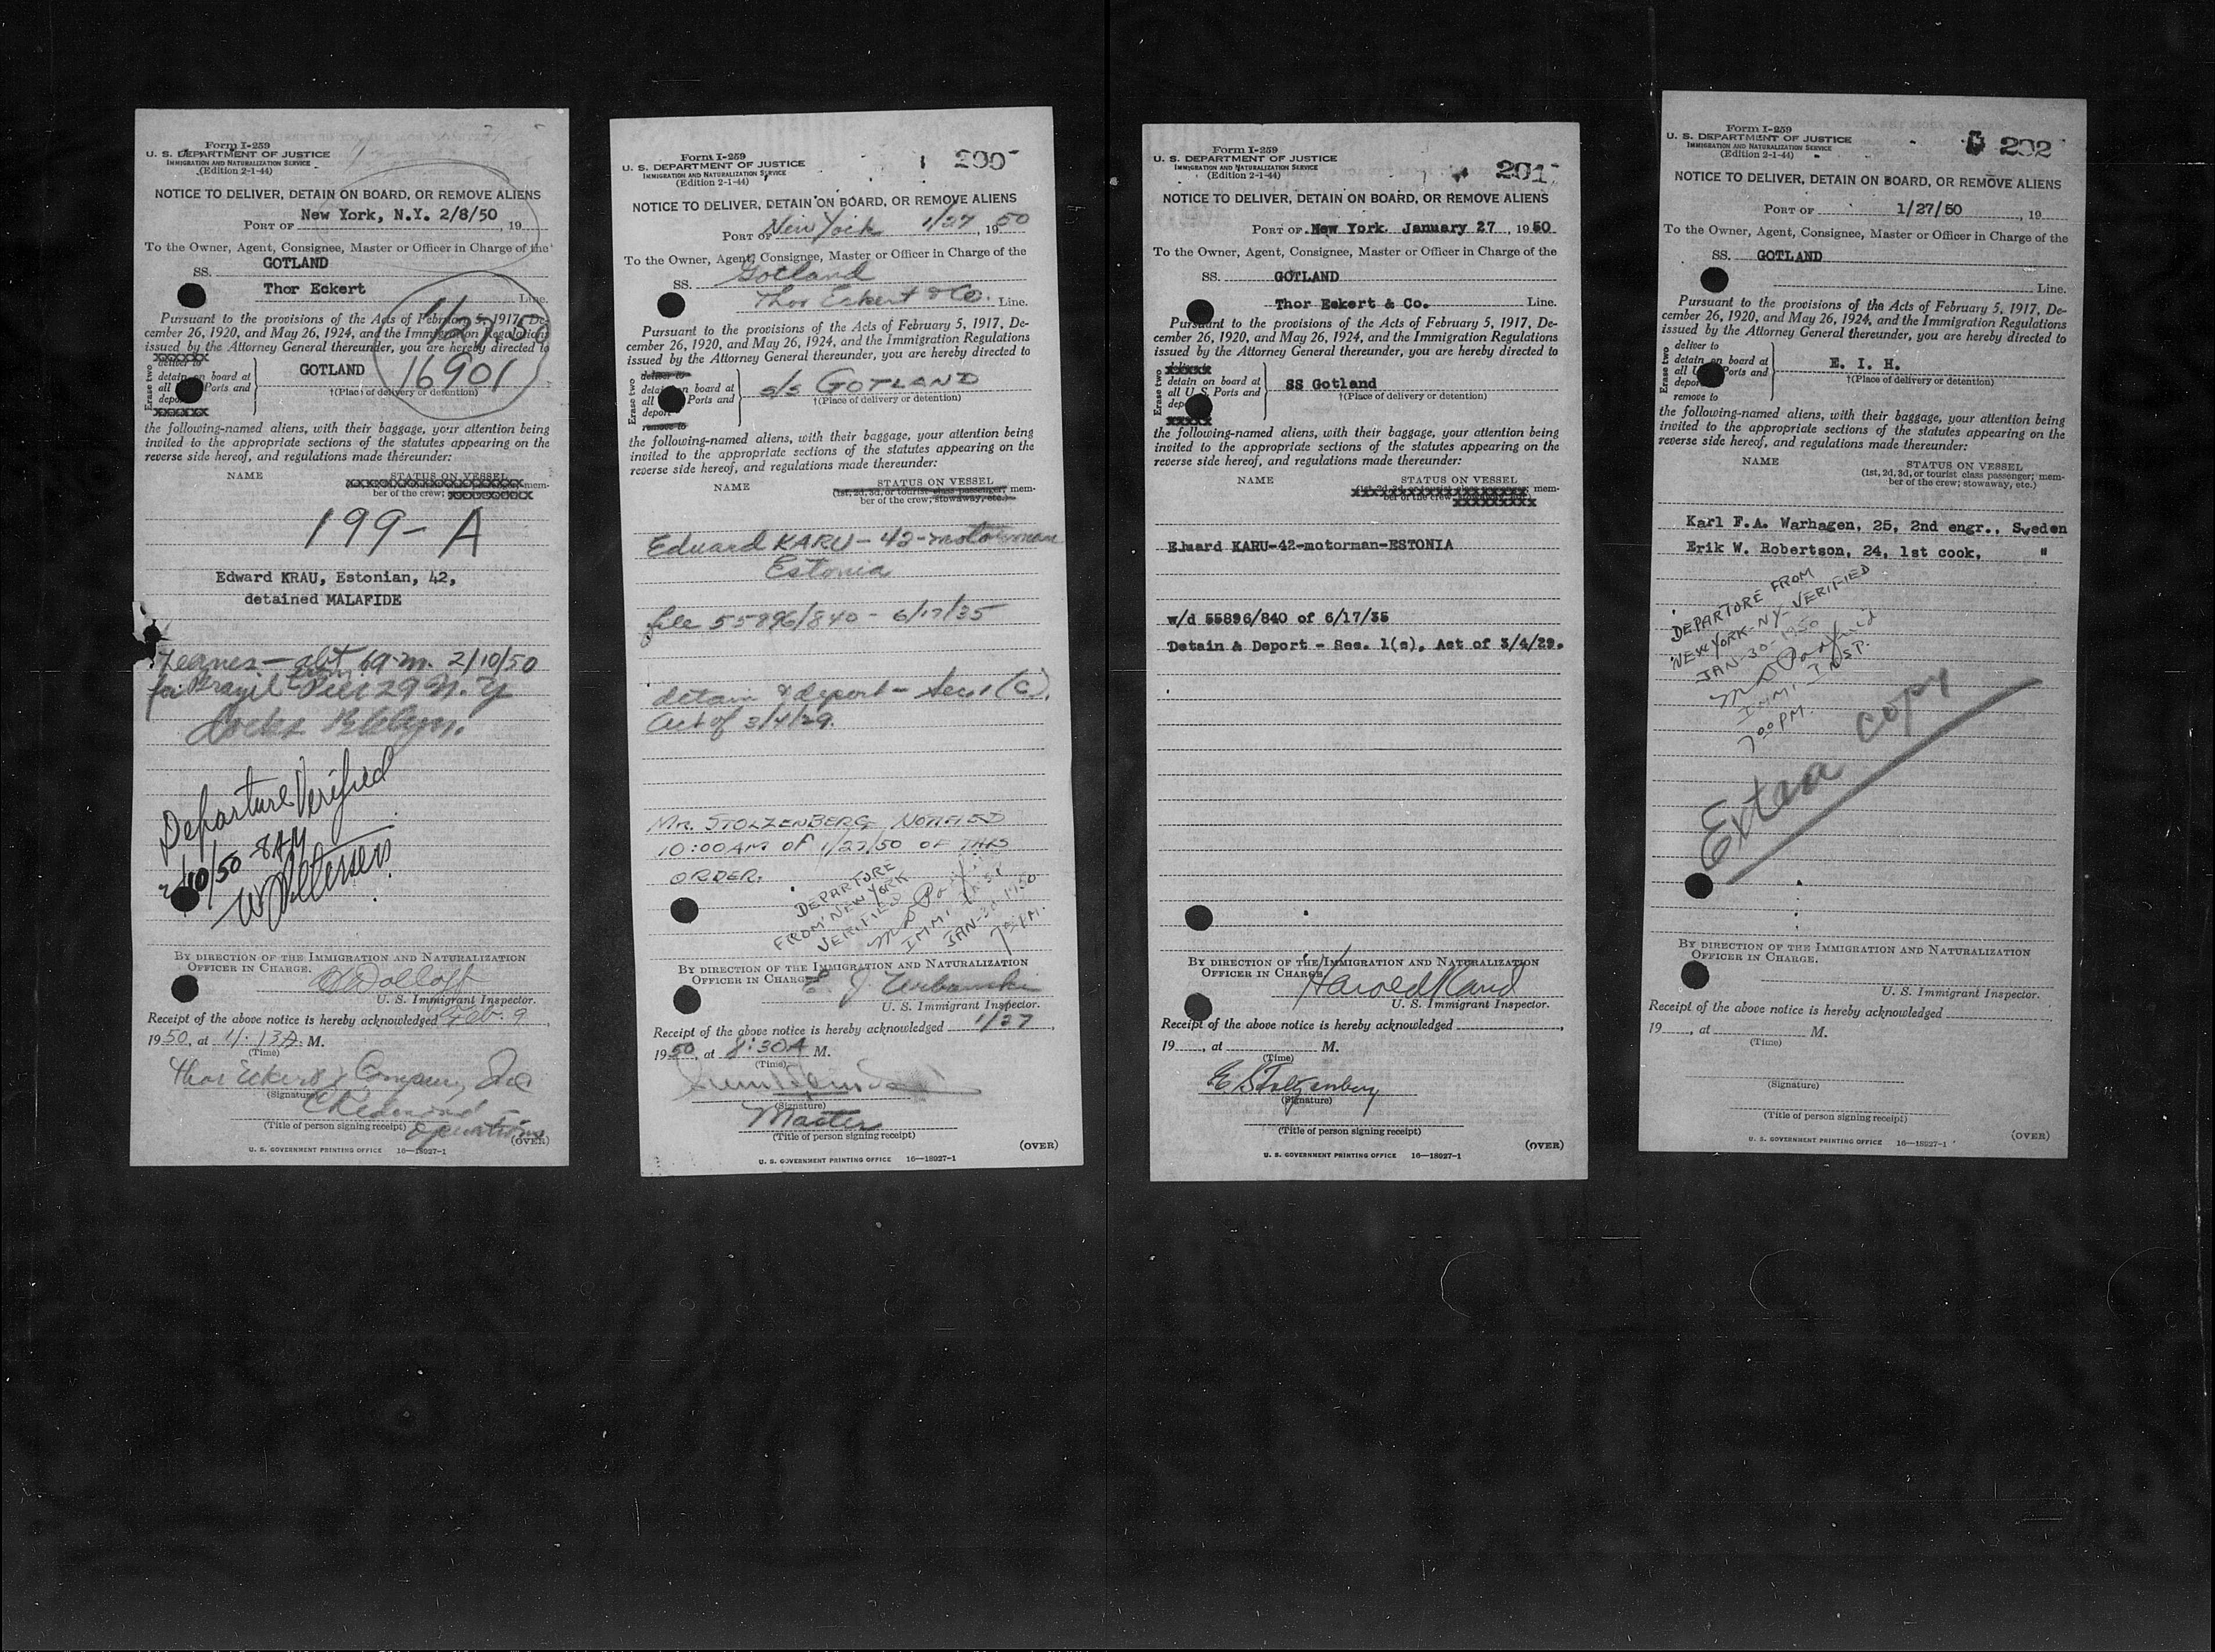 Form I-259
U. S. DEPARTMENT OF JUSTICE
IMMIGRATION AND NATURALIZATION SERVICE
(Edition 2-1-44)
NOTICE TO DELIVER, DETAIN ON BOARD, OR REMOVE ALIENS
PORT OF New York, N.Y. 2/8/50, 19
To the Owner, Agent, Consignee, Master or Officer in Charge of the
SS. GOTLAND
Thor Eckert Line.
1/27/50
16901
Pursuant to the provisions of the Acts of February 5, 1917, De-
cember 26, 1920, and May 26, 1924, and the Immigration Regulations
issued by the Attorney General thereunder, you are hereby directed to
Erase two
deliver to
detain on board at
all Ports and
depor
GOTLAND
†(Place of delivery or detention)
xxxxxx
the following-named aliens, with their baggage, your attention being
invited to the appropriate sections of the statutes appearing on the
reverse side hereof, and regulations made thereunder:
NAME STATUS ON VESSEL
mem-
ber of the crew;
199-A
Edward KRAU, Estonian, 42,
detained MALAFIDE
2/10/50
for Brazil Pier 29 N.Y
Docks Bklyn.
Departure Verified
2/10/50 - 8AM
BY DIRECTION OF THE IMMIGRATION AND NATURALIZATION
OFFICER IN CHARGE.
U. S. Immigrant Inspector.
Receipt of the above notice is hereby acknowledged Feb. 9,
1950, at 11:13A M.
(Time)
Thor Eckert & Company, Inc
(Signature)
(Title of person signing receipt) Operations
(OVER)
U. S. GOVERNMENT PRINTING OFFICE 16—18927-1
Form I-259
U. S. DEPARTMENT OF JUSTICE
IMMIGRATION AND NATURALIZATION SERVICE
(Edition 2-1-44)
200
NOTICE TO DELIVER, DETAIN ON BOARD, OR REMOVE ALIENS
PORT OF New York 1/27, 1950
To the Owner, Agent, Consignee, Master or Officer in Charge of the
SS. Gotland
Thor Eckert & Co. Line.
Pursuant to the provisions of the Acts of February 5, 1917, De-
cember 26, 1920, and May 26, 1924, and the Immigration Regulations
issued by the Attorney General thereunder, you are hereby directed to
Erase two
deliver to
detain on board at
all Ports and
deport
remove to
s/s GOTLAND
†(Place of delivery or detention)
the following-named aliens, with their baggage, your attention being
invited to the appropriate sections of the statutes appearing on the
reverse side hereof, and regulations made thereunder:
NAME STATUS ON VESSEL
(1st, 2d, 3d, or tourist class passenger; mem-
ber of the crew; stowaway, etc.)
Eduard KARU - 42 - motorman
Estonia
file 55896/840 - 6/17/35
detain & deport - Sec. 1 (c),
Act of 3/4/29.
MR. STOLZENBERG NOTIFIED
10:00AM OF 1/27/50 OF THIS
ORDER.
DEPARTURE
FROM NEW YORK
VERIFIED
IMMI INSP
JAN-30-1950
7 00 P.M.
BY DIRECTION OF THE IMMIGRATION AND NATURALIZATION
OFFICER IN CHARGE. E. J. Urbanski
U. S. Immigrant Inspector.
Receipt of the above notice is hereby acknowledged 1/27,
1950, at 8:30A M.
(Time)
(Signature)
Master
(Title of person signing receipt)
(OVER)
U. S. GOVERNMENT PRINTING OFFICE 16—18927-1
Form I-259
U. S. DEPARTMENT OF JUSTICE
IMMIGRATION AND NATURALIZATION SERVICE
(Edition 2-1-44)
201
NOTICE TO DELIVER, DETAIN ON BOARD, OR REMOVE ALIENS
PORT OF New York January 27, 1950
To the Owner, Agent, Consignee, Master or Officer in Charge of the
SS. GOTLAND
Thor Eckert & Co. Line.
Pursuant to the provisions of the Acts of February 5, 1917, De-
cember 26, 1920, and May 26, 1924, and the Immigration Regulations
issued by the Attorney General thereunder, you are hereby directed to
Erase two
xxxxx
detain on board at
all U. S. Ports and
dep
xxxxx
SS Gotland
†(Place of delivery or detention)
the following-named aliens, with their baggage, your attention being
invited to the appropriate sections of the statutes appearing on the
reverse side hereof, and regulations made thereunder:
NAME STATUS ON VESSEL
mem-
ber of the crew
Eduard KARU-42-motorman-ESTONIA
w/d 55896/840 of 6/17/35
Detain & Deport - Sec. 1(c), Act of 3/4/29.
BY DIRECTION OF THE IMMIGRATION AND NATURALIZATION
OFFICER IN CHARGE.
Harold Rand
U. S. Immigrant Inspector.
Receipt of the above notice is hereby acknowledged ,
19 , at M.
(Time)
E. Stoltzenberg
(Signature)
(Title of person signing receipt)
(OVER)
U. S. GOVERNMENT PRINTING OFFICE 16—18927-1
Form I-259
U. S. DEPARTMENT OF JUSTICE
IMMIGRATION AND NATURALIZATION SERVICE
(Edition 2-1-44)
202
NOTICE TO DELIVER, DETAIN ON BOARD, OR REMOVE ALIENS
PORT OF 1/27/50, 19
To the Owner, Agent, Consignee, Master or Officer in Charge of the
SS. GOTLAND
Line.
Pursuant to the provisions of the Acts of February 5, 1917, De-
cember 26, 1920, and May 26, 1924, and the Immigration Regulations
issued by the Attorney General thereunder, you are hereby directed to
Erase two
deliver to
detain on board at
all U Ports and
depor
remove to
E. I. H.
†(Place of delivery or detention)
the following-named aliens, with their baggage, your attention being
invited to the appropriate sections of the statutes appearing on the
reverse side hereof, and regulations made thereunder:
NAME STATUS ON VESSEL
(1st, 2d, 3d, or tourist class passenger; mem-
ber of the crew; stowaway, etc.)
Karl F.A. Warhagen, 25, 2nd engr., Sweden
Erik W. Robertson, 24, 1st cook, "
DEPARTURE FROM
NEW YORK-NY-VERIFIED
JAN-30-1950
IMMI INSP.
7 00 PM.
Extra copy
BY DIRECTION OF THE IMMIGRATION AND NATURALIZATION
OFFICER IN CHARGE.
U. S. Immigrant Inspector.
Receipt of the above notice is hereby acknowledged
19 , at M.
(Time)
(Signature)
(Title of person signing receipt)
(OVER)
U. S. GOVERNMENT PRINTING OFFICE 16—18927-1